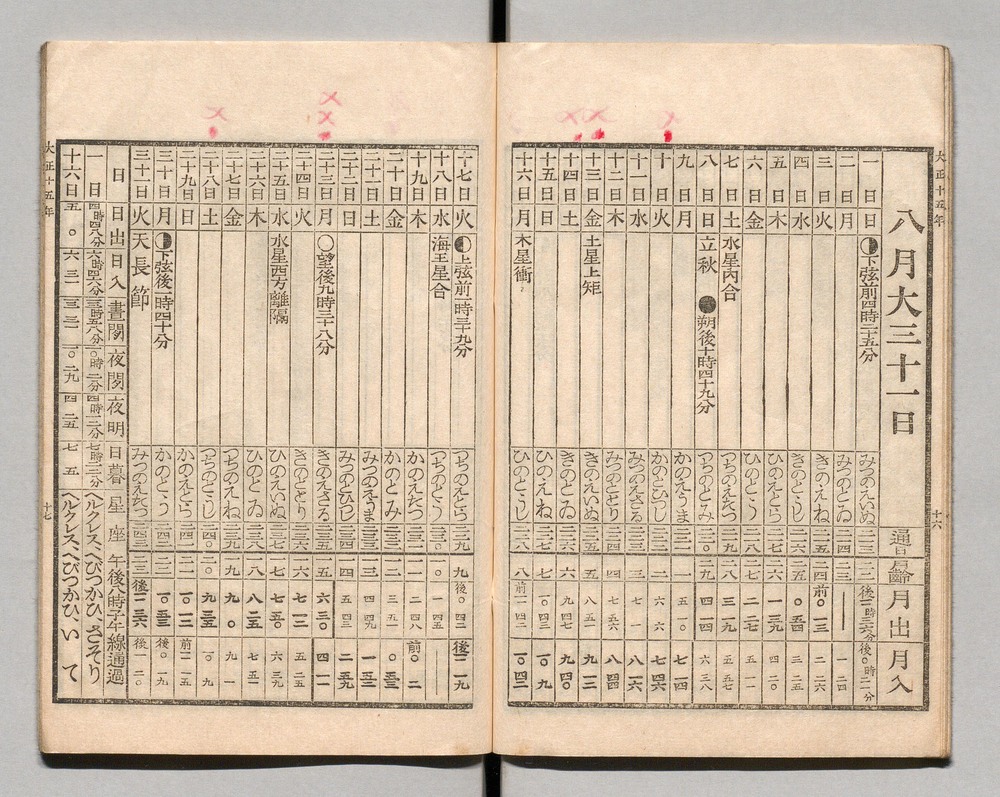 大正十五年
十六
八月大三十一日
通日
月齢
月出
月入
一日 日 下弦前四時二十五分 みつのえいぬ 二一三 二二 後一一時三六分 後〇時二一分
二日 月 みつのとゐ 二一四 二三 — 一 二四
三日 火 きのえね 二一五 二四 前〇 一三 二 二六
四日 水 きのとうし 二一六 二五 〇 五四 三 二五
五日 木 ひのえとら 二一七 二六 一 三九
六日 金 ひのとう 二一八 二七 二 二七 五 一一
七日 土 水星内合 つちのえたつ 二一九 二八 五 五七
八日 日 立秋 朔後十時四十九分 つちのとみ 二二〇 二九 四 一四 六 三八
九日 月 かのえうま 二二一 五 一〇 七 一四
十日 火 かのとひつし 二二二 一 六 六 七 四六
十一日 水 みつのえさる 二二三 二 七 一 八 一六
十二日 木 みつのととり 二二四 三 七 五六 八 四四
十三日 金 土星上矩 きのえいぬ 二二五 四 八 五一 九 一二
十四日 土 きのとゐ 二二六 五 九 四七 九 四〇
十五日 日 ひのえね 二二七 六 一〇 四三 一〇 九
十六日 月 木星衝 ひのとうし 二二八 八 前一一 四二 一〇 四二
十七日 火 上弦前一時三十九分 つちのえとら 二二九 九 後〇 四二 後一一 一九
十八日 水 海王星合 つちのとう 二三〇 一〇 —
十九日 木 かのえたつ 二三一 一一 二 四八 前〇 二
二十日 金 かのとみ 二三二 一二
二十一日 土 みつのえうま 二三三 一三 四 四九 一 五二
二十二日 日 みつのとひつし 二三四 一四 五 四三 二 五九
二十三日 月 望後九時三十八分 きのえさる 二三五 一五 六 三〇 四 一一
二十四日 火 きのととり 二三六 一六 七 一二 五 二五
二十五日 水 水星西方離隔 ひのえいぬ 二三七 一七 七 五〇 六 三九
二十六日 木 ひのとゐ 二三八 一八 八 二五 七 五一
二十七日 金 つちのえね 二三九 一九 九 〇 九 一
二十八日 土 つちのとうし 二四〇 二〇 九 三五 一〇 九
二十九日 日 かのえとら 二四一 二一 一〇 一二 前一一 一五
三十日 月 下弦後一時四十分 かのとう 二四二 二二 一〇 五一 後〇 一九
三十一日 火 天長節 みつのえたつ 二四三 二三 後一一 三六 後一 二〇
日 日出 日入 昼間 夜間 夜明 日暮 星座 午後八時子午線通過
一日 四時四八分 六時四六分 一三時五八分 一〇時二分 四時一二分 七時二二分 ヘルクレス、へびつかひ、さそり
十六日 五 〇 六 三一 一三 三一 一〇 二九 四 二五 七 五 ヘルクレス、へびつかひ、いて
大正十五年
十七